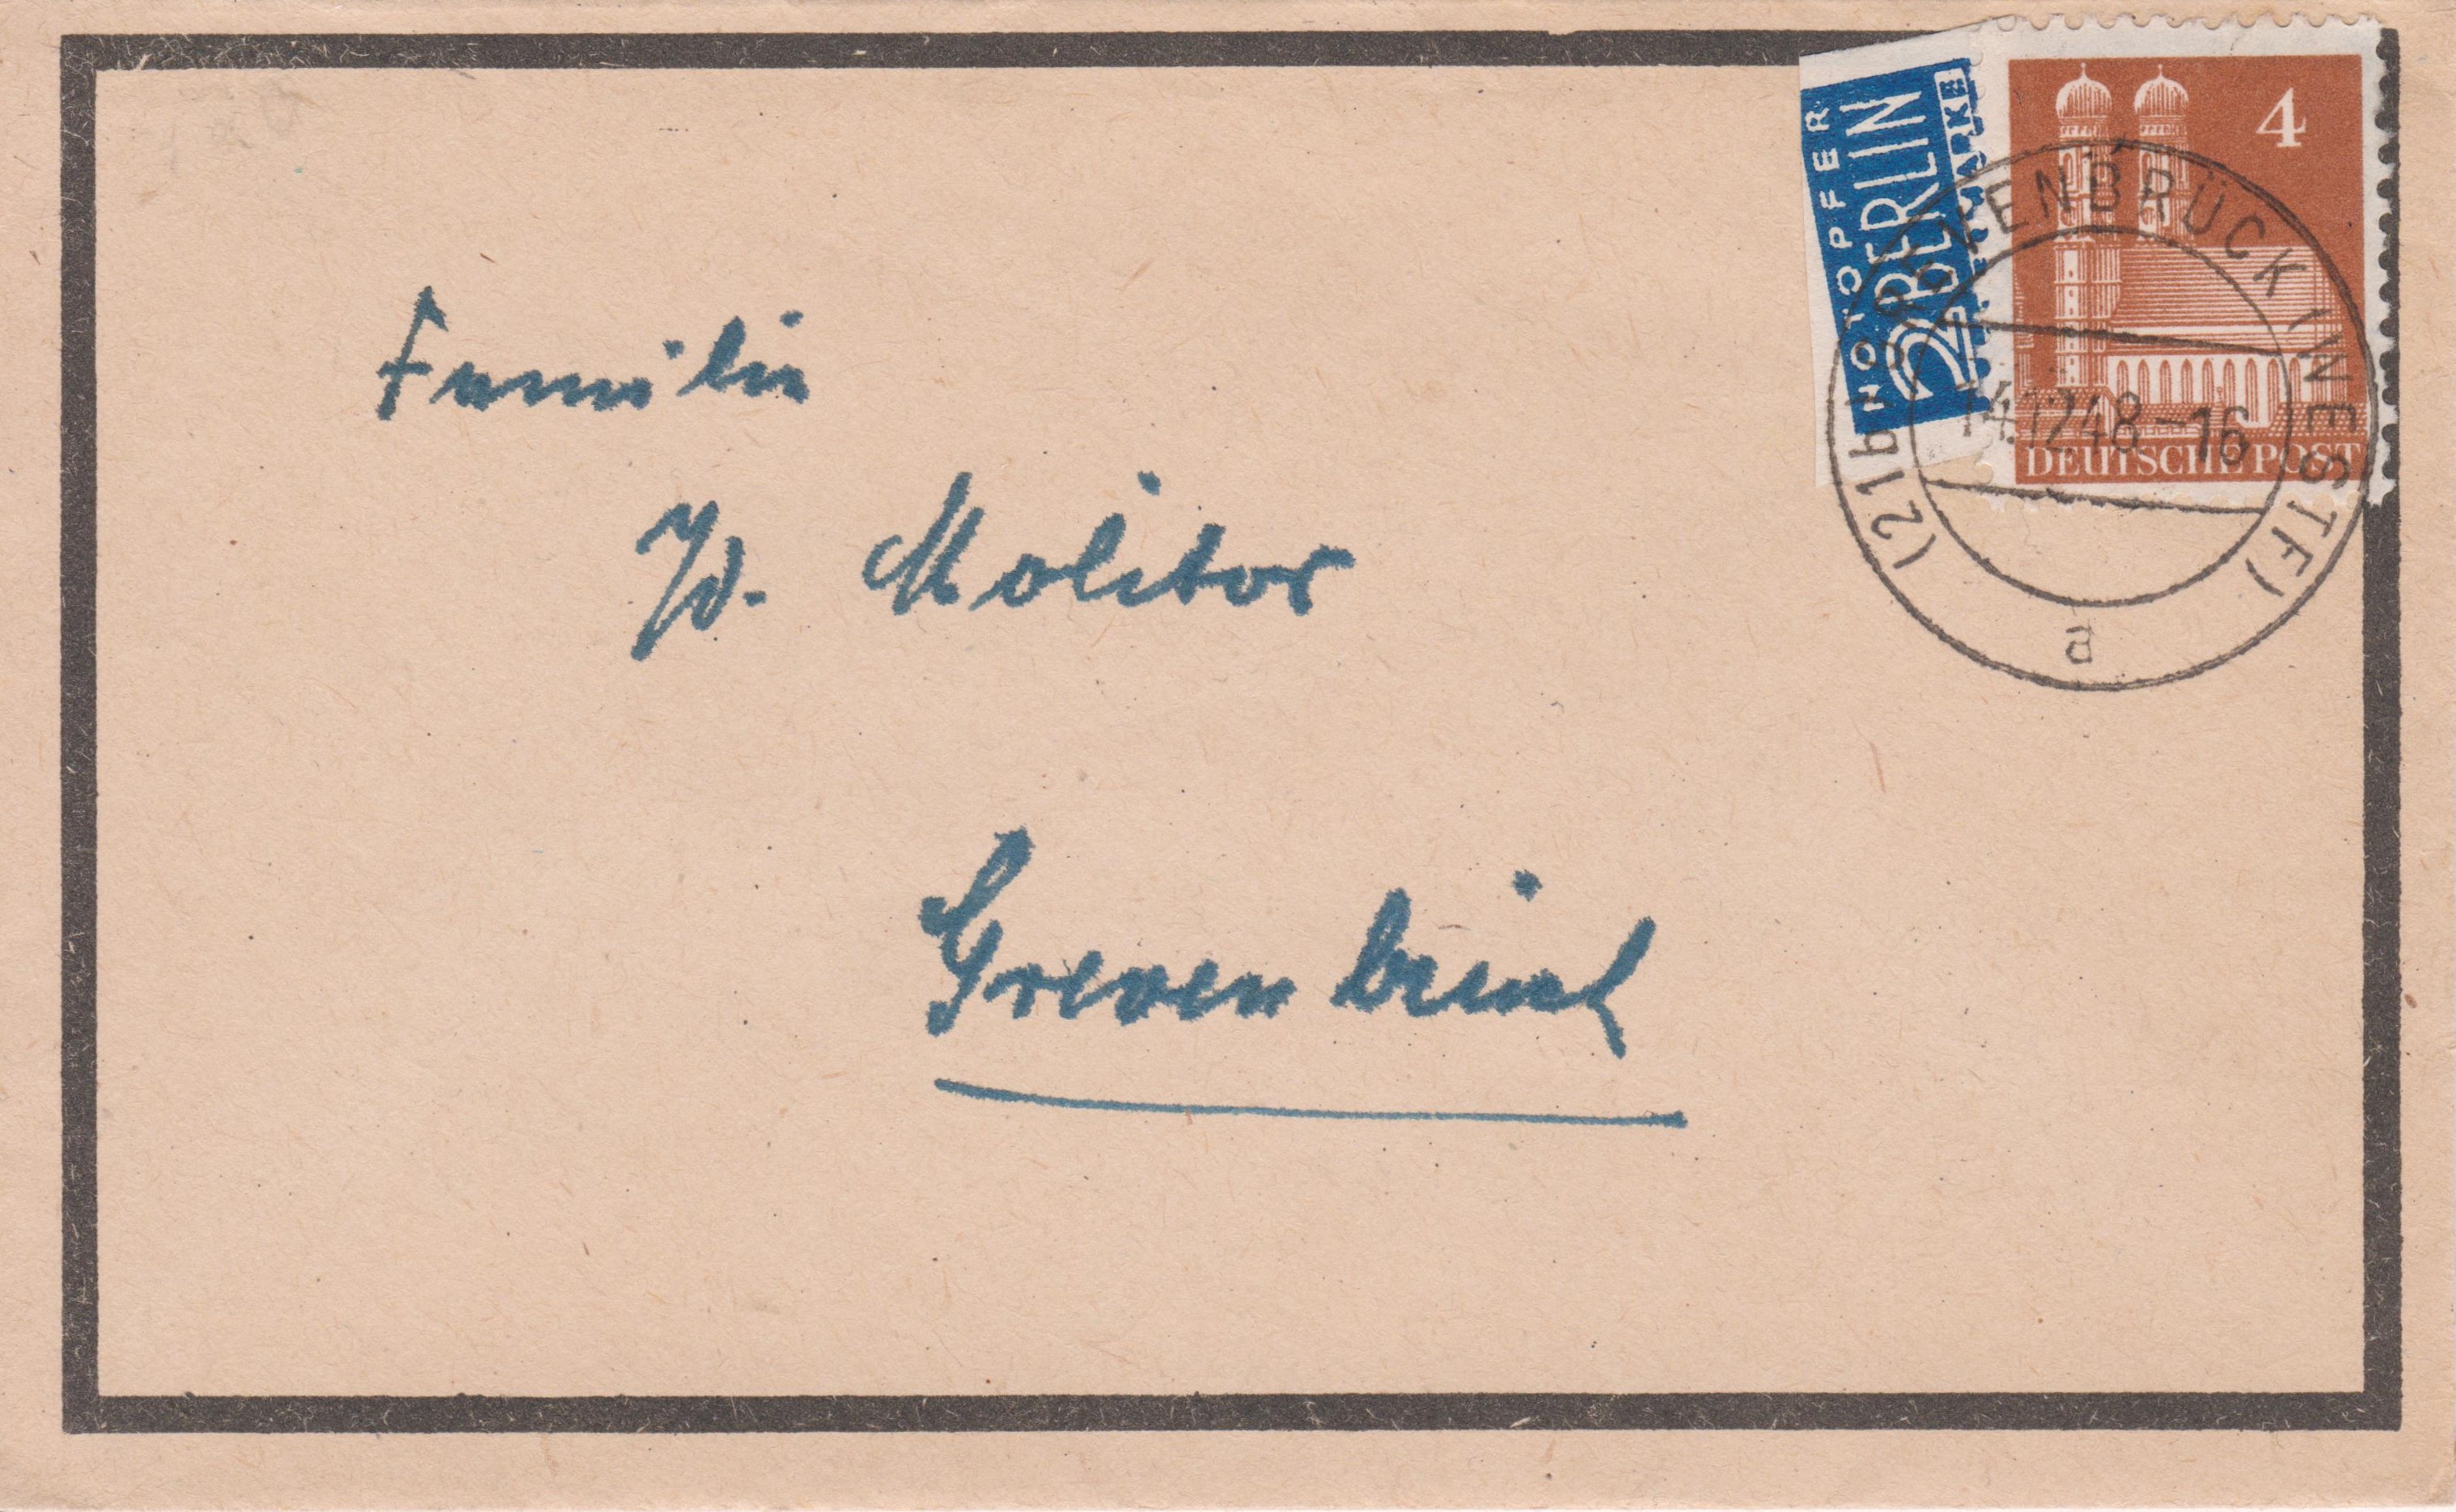 NOTOPFER
2 BERLIN
STEUERMARKE
4
DEUTSCHE POST
(21b) GREVENBRÜCK (WESTF)
14.12.48-16
a
Familie
Molitor
Grevenbrück